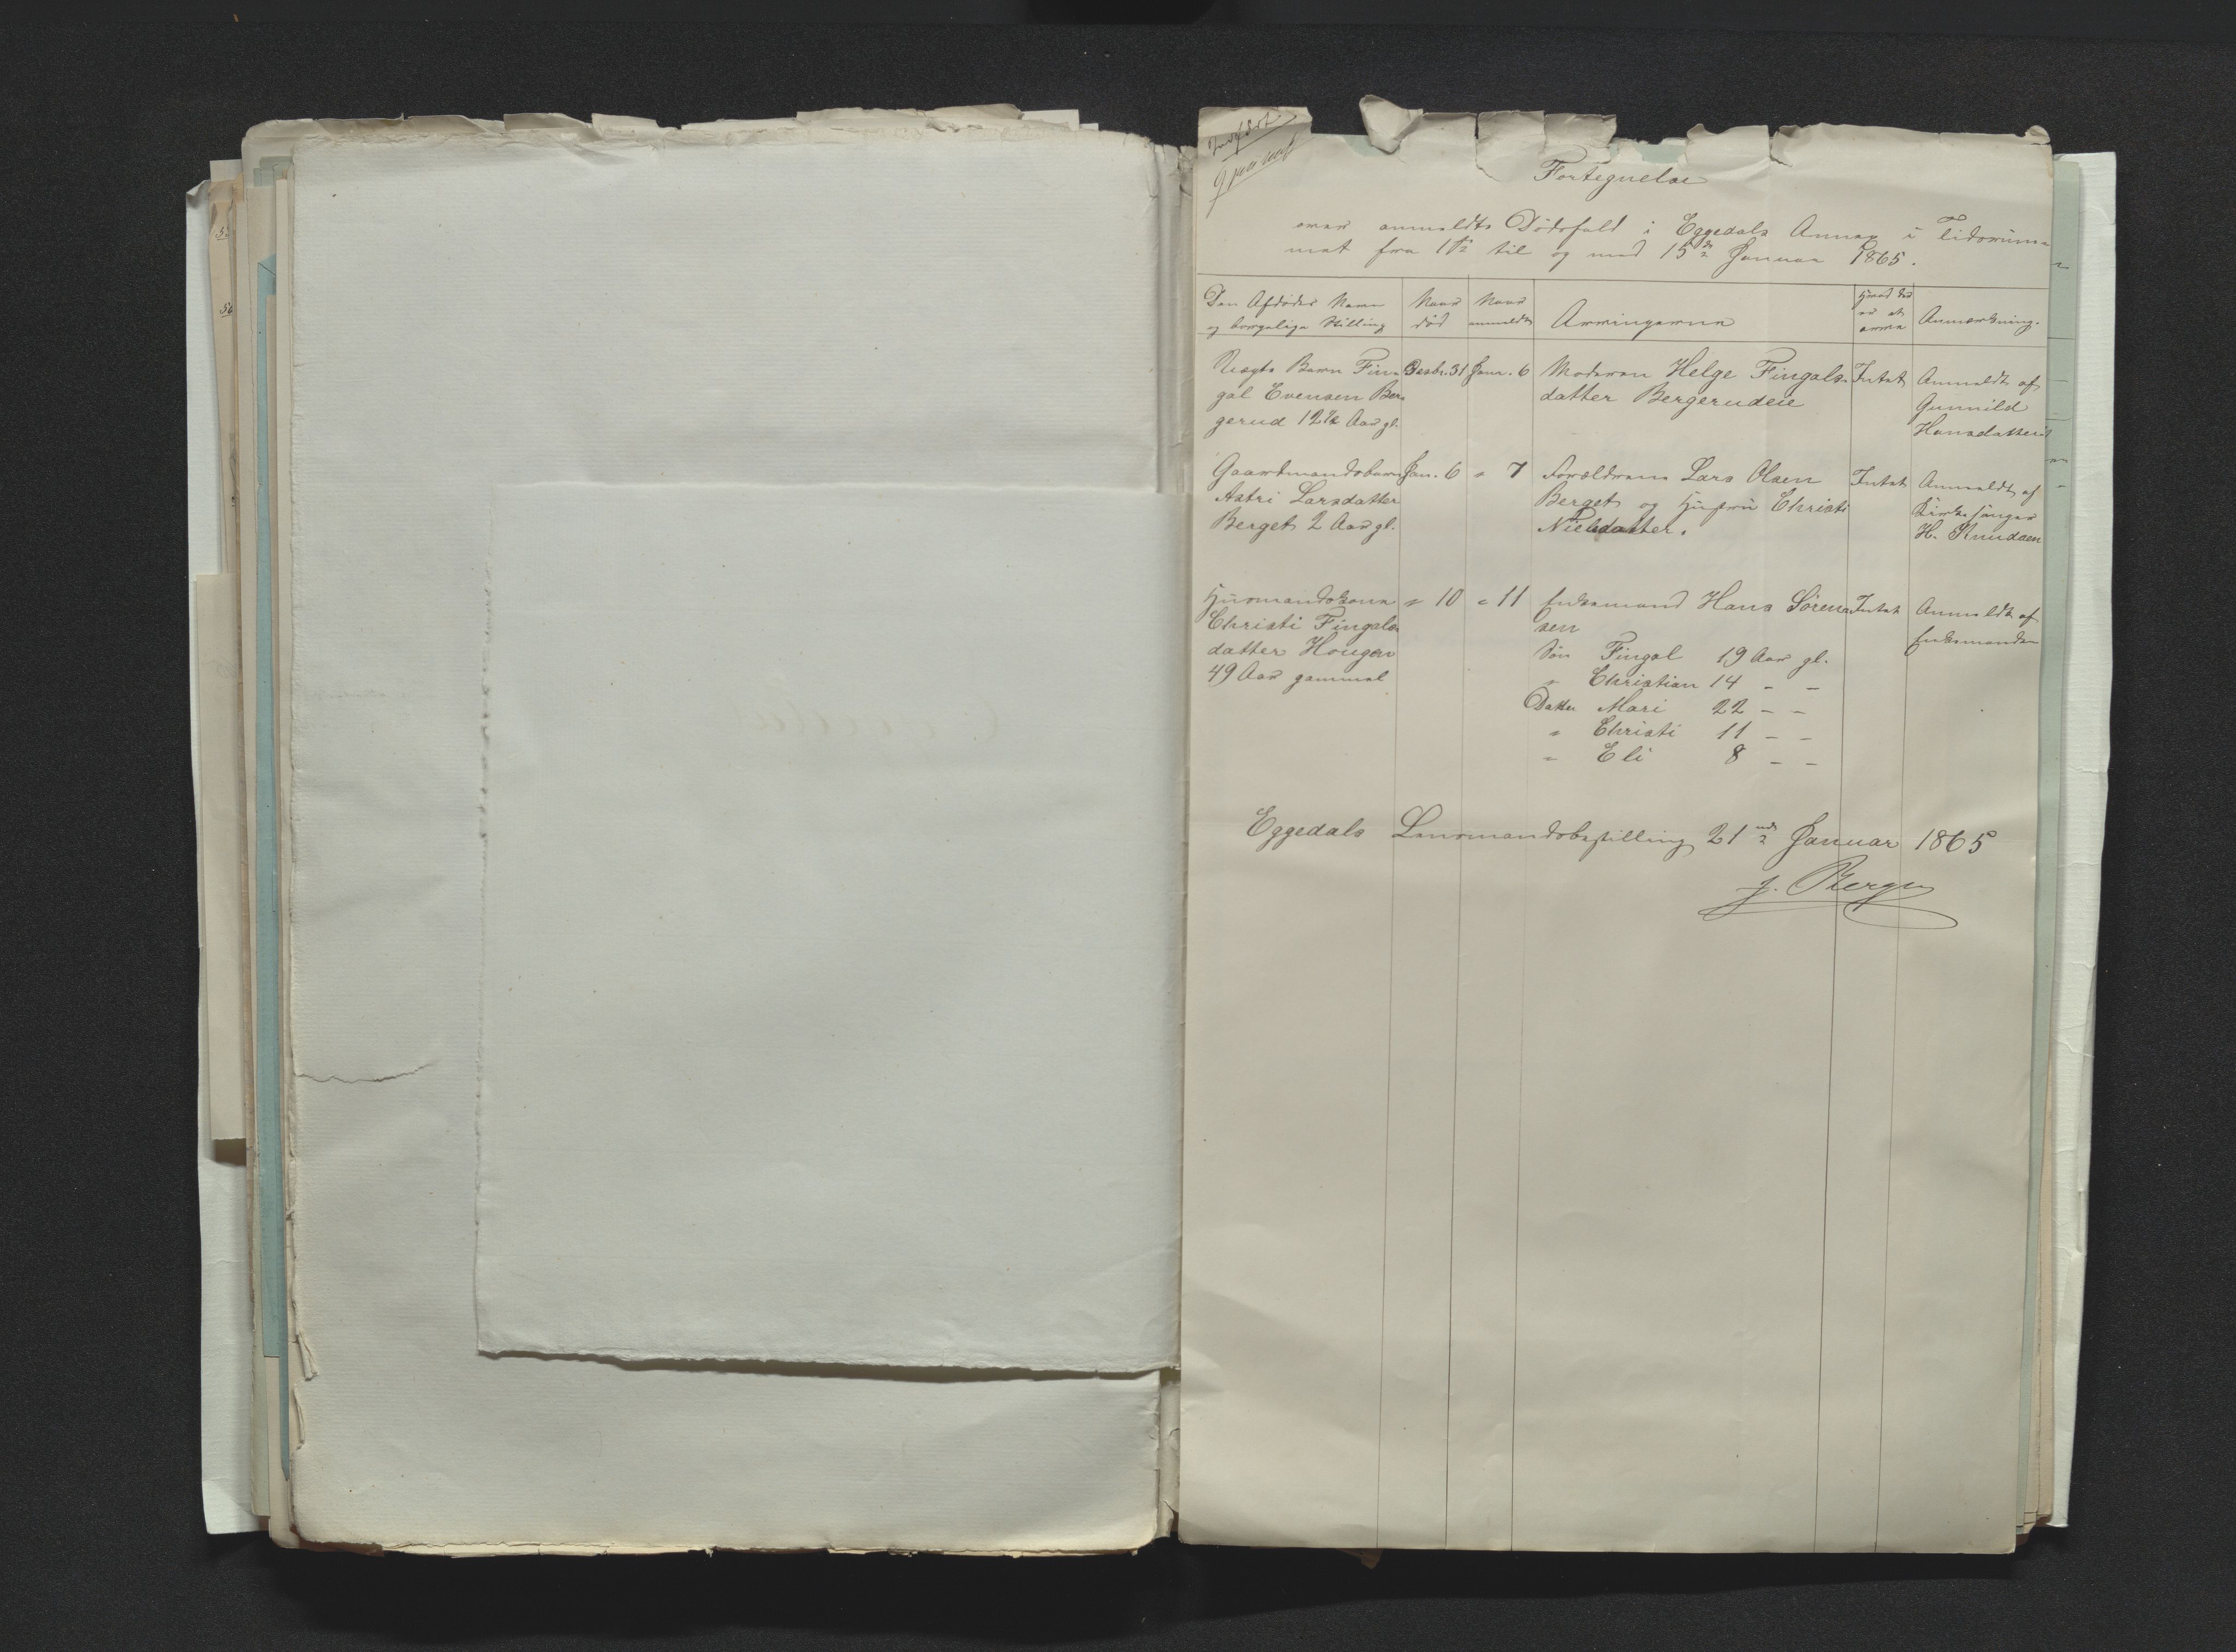 Indført
Fortegnelse
over anmeldte Dødsfald i Eggedals Annex i Tidsrum-
met fra 1ste til og med 15de Januar 1865.
Den Afdødes Navn
og borgelige Stilling
Naar
død
Naar
anmeldt
Arvingerne
Hvad der
er at
arve
Anmærkning.
Uægte Barn Fin-
gal Evensen Ber-
gerud 12 1/2 Aar gl.
Decbr. 31
Janr. 6
Moderen Helge Fingals-
datter Bergerudeie
Intet
Anmeldt af
Gunnild
Hansdatter
Gaardmandsbarn
Astri Larsdatter
Berget 2 Aar gl.
Jan. 6
" 7
Forældrene Lars Olsen
Berget og Hustru Christi
Nielsdatter.
Intet
Anmeldt af
Kirkesanger
H. Knudsen
Husmandskone
Christi Fingals-
datter Hougen
49 Aar gammel
" 10
" 11
Enkemand Hans Sören-
sen
Søn Fingal 19 Aar gl.
" Christian 14 - -
Datter Mari 22 - -
" Christi 11 - -
" Eli 8 - -
Intet
Anmeldt af
Enkemanden
Eggedals Lensmandsbestilling 21nde Januar 1865
J. Berge